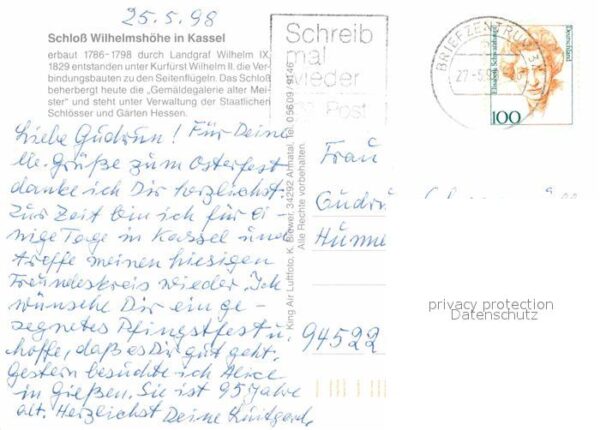 25.5.98
Schloß Wilhelmshöhe in Kassel
erbaut 1786-1798 durch Landgraf Wilhelm IX.
1829 entstanden unter Kurfürst Wilhelm II. die Ver-
bindungsbauten zu den Seitenflügeln. Das Schloß
beherbergt heute die „Gemäldegalerie alter Mei-
ster“ und steht unter Verwaltung der Staatlichen
Schlösser und Gärten Hessen.
Liebe Gudrun! Für Deine
lb. Grüße zum Osterfest
danke ich Dir herzlichst.
Zur Zeit bin ich für ei-
nige Tage in Kassel und
treffe meinen hiesigen
Freundeskreis wieder. Ich
wünsche Dir ein ge-
segnetes Pfingstfest u.
hoffe, daß es Dir gut geht.
Gestern besuchte ich Alice
in Gießen. Sie ist 95 Jahre
alt. Herzlichst Deine Luitgard
King Air Luftfoto, K. Biewer, 34292 Ahnatal, Tel. 05609/9146
Alle Rechte vorbehalten.
Schreib
mal
wieder
Post
BRIEFZENTRUM 34
27.-5.98
Elisabeth Schwarzhaupt
Deutschland
100
Frau
Gudru
Humme
94522
privacy protection
Datenschutz